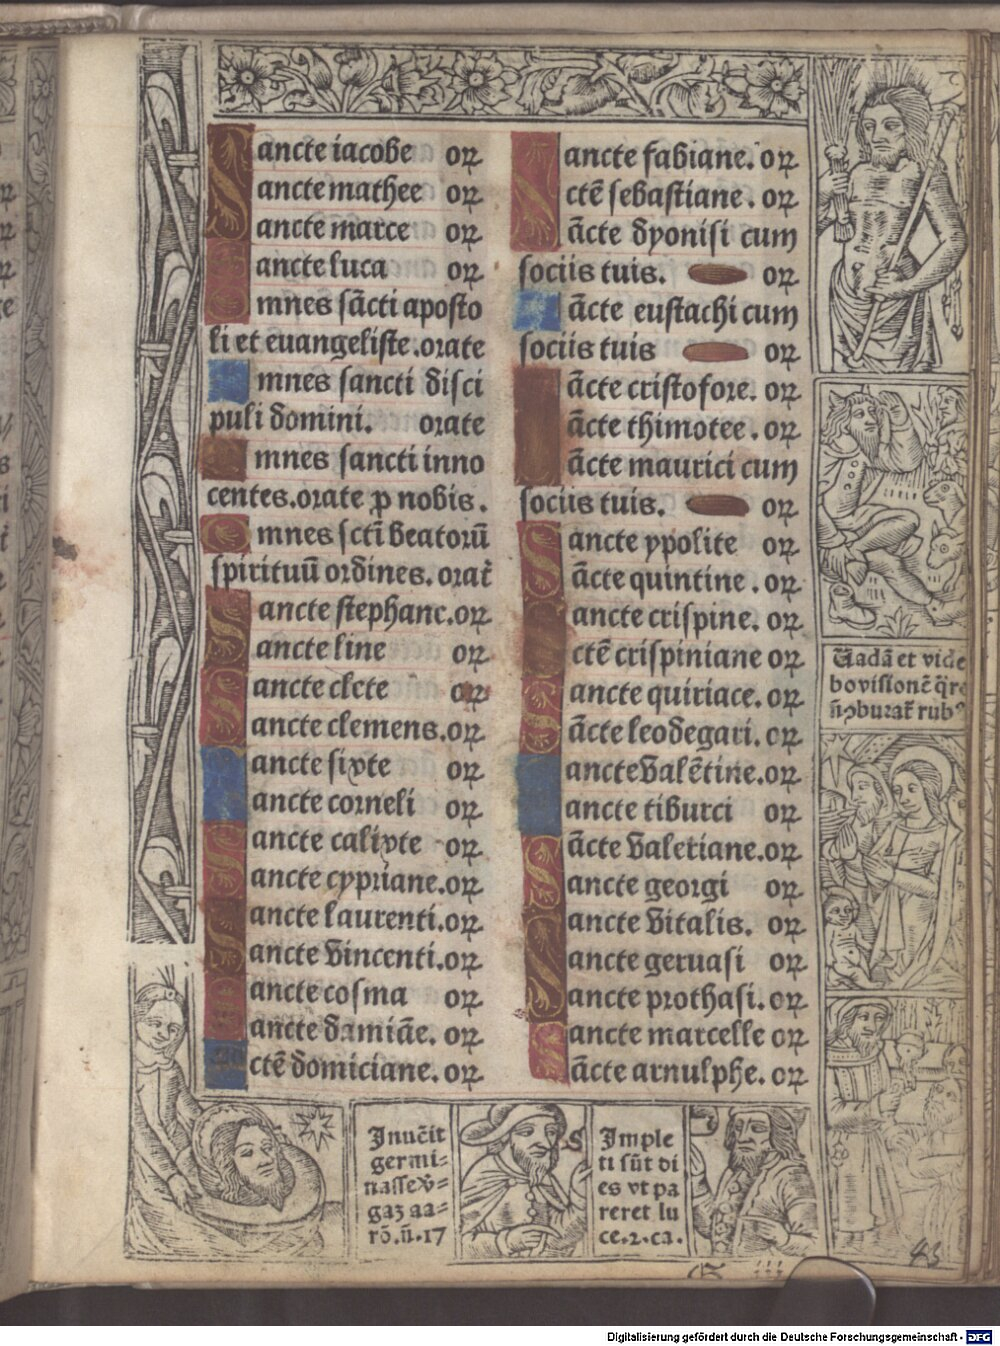 Sancte iacobe oꝝ
Sancte mathee oꝝ
Sancte marce oꝝ
Sancte luca oꝝ
Omnes sācti aposto
li et euangeliste .orate
Omnes sancti disci
puli domini. orate
Omnes sancti inno
centes.orate ꝓ nobis.
Omnes sctī beatorū
spirituū ordines. orat̄
Sancte stephane.oꝝ
Sancte line oꝝ
Sancte clete oꝝ
Sancte clemens.oꝝ
Sancte sixte oꝝ
Sancte corneli oꝝ
Sancte calixte oꝝ
Sancte cypriane.oꝝ
Sancte laurenti.oꝝ
Sancte vincenti.oꝝ
Sancte cosma oꝝ
Sancte damiāe. oꝝ
Sctē domiciane. oꝝ
Sancte fabiane. oꝝ
Sctē sebastiane. oꝝ
Sācte dyonisi cum
sociis tuis. oꝝ
Sācte eustachi cum
sociis tuis oꝝ
Sācte cristofore. oꝝ
Sācte thimotee. oꝝ
Sācte maurici cum
sociis tuis. oꝝ
Sancte ypolite oꝝ
Sācte quintine. oꝝ
Sancte crispine. oꝝ
Sctē crispiniane oꝝ
Sancte quiriace. oꝝ
Sācte leodegari. oꝝ
Sancte valētine.oꝝ
Sancte tiburci oꝝ
Sācte valeriane.oꝝ
Sancte georgi oꝝ
Sancte vitalis. oꝝ
Sancte geruasi oꝝ
Sancte prothasi. oꝝ
Sancte marcelle oꝝ
Sācte arnulphe. oꝝ
Uadā et vide
bo visionē q̄re
n̄ ↄburat̄ rubꝰ
Inuēit
germi-
nasse v̄-
gaz aa-
rō. ū.17
Imple
ti sūt di
es vt pa
reret lu
ce.2.ca.
43
G iii
Digitalisierung gefördert durch die Deutsche Forschungsgemeinschaft - DFG